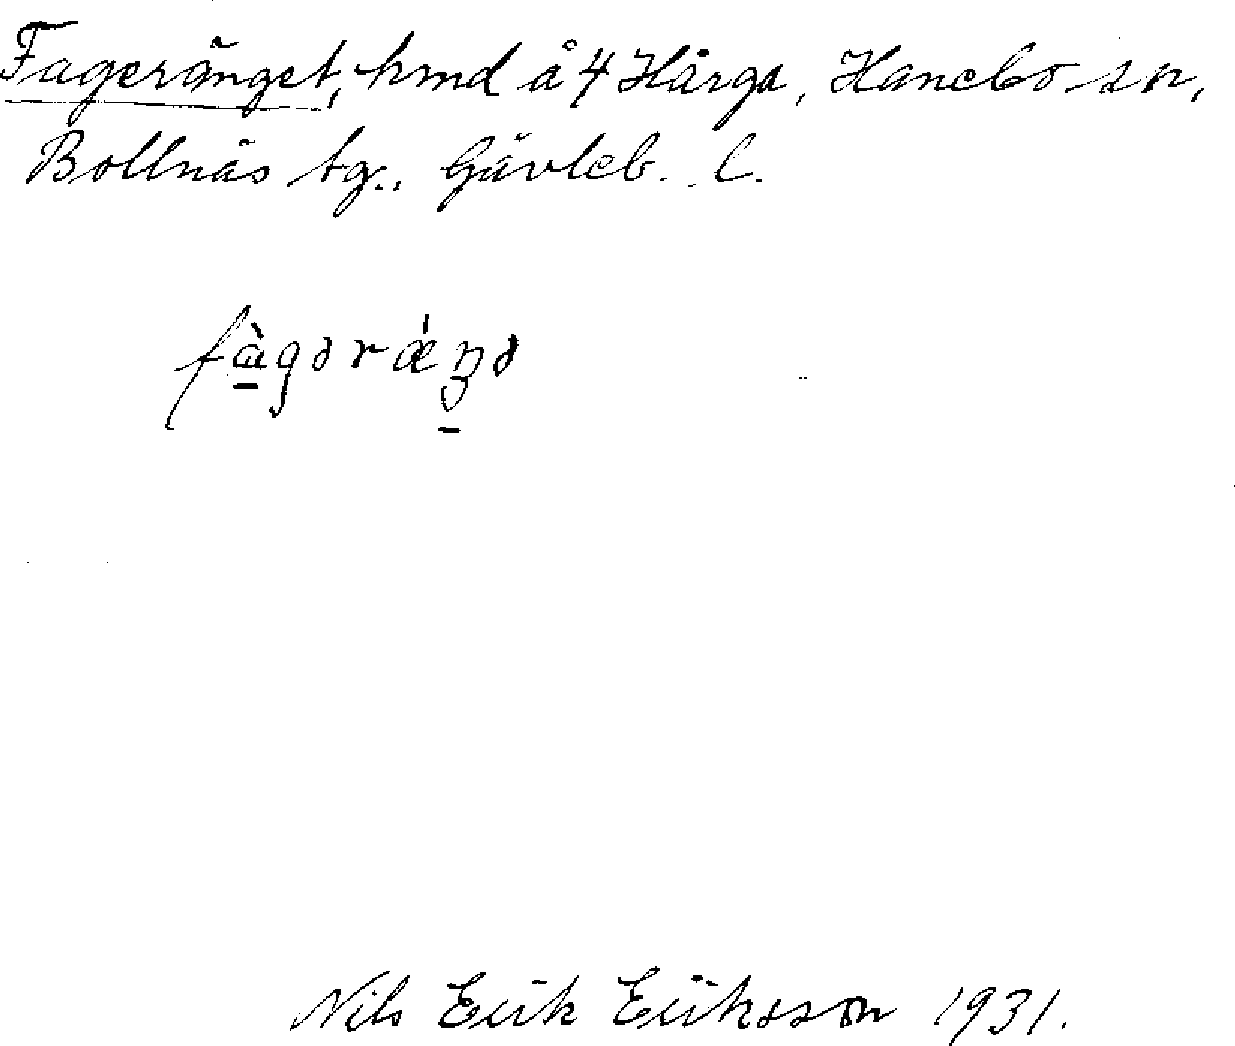 Fageränget, hmd å 4 Hårga, Hanebo sn,
Bollnäs tg., Gävleb. l.
fàgərǽŋə
Nils Erik Eriksson 1931.